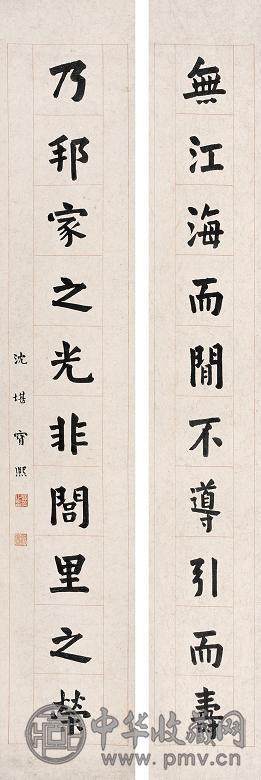 無江海而閒不導引而壽
乃邦家之光非閭里之榮
沈堪寗熙
中华收藏网
www.pmv.cn